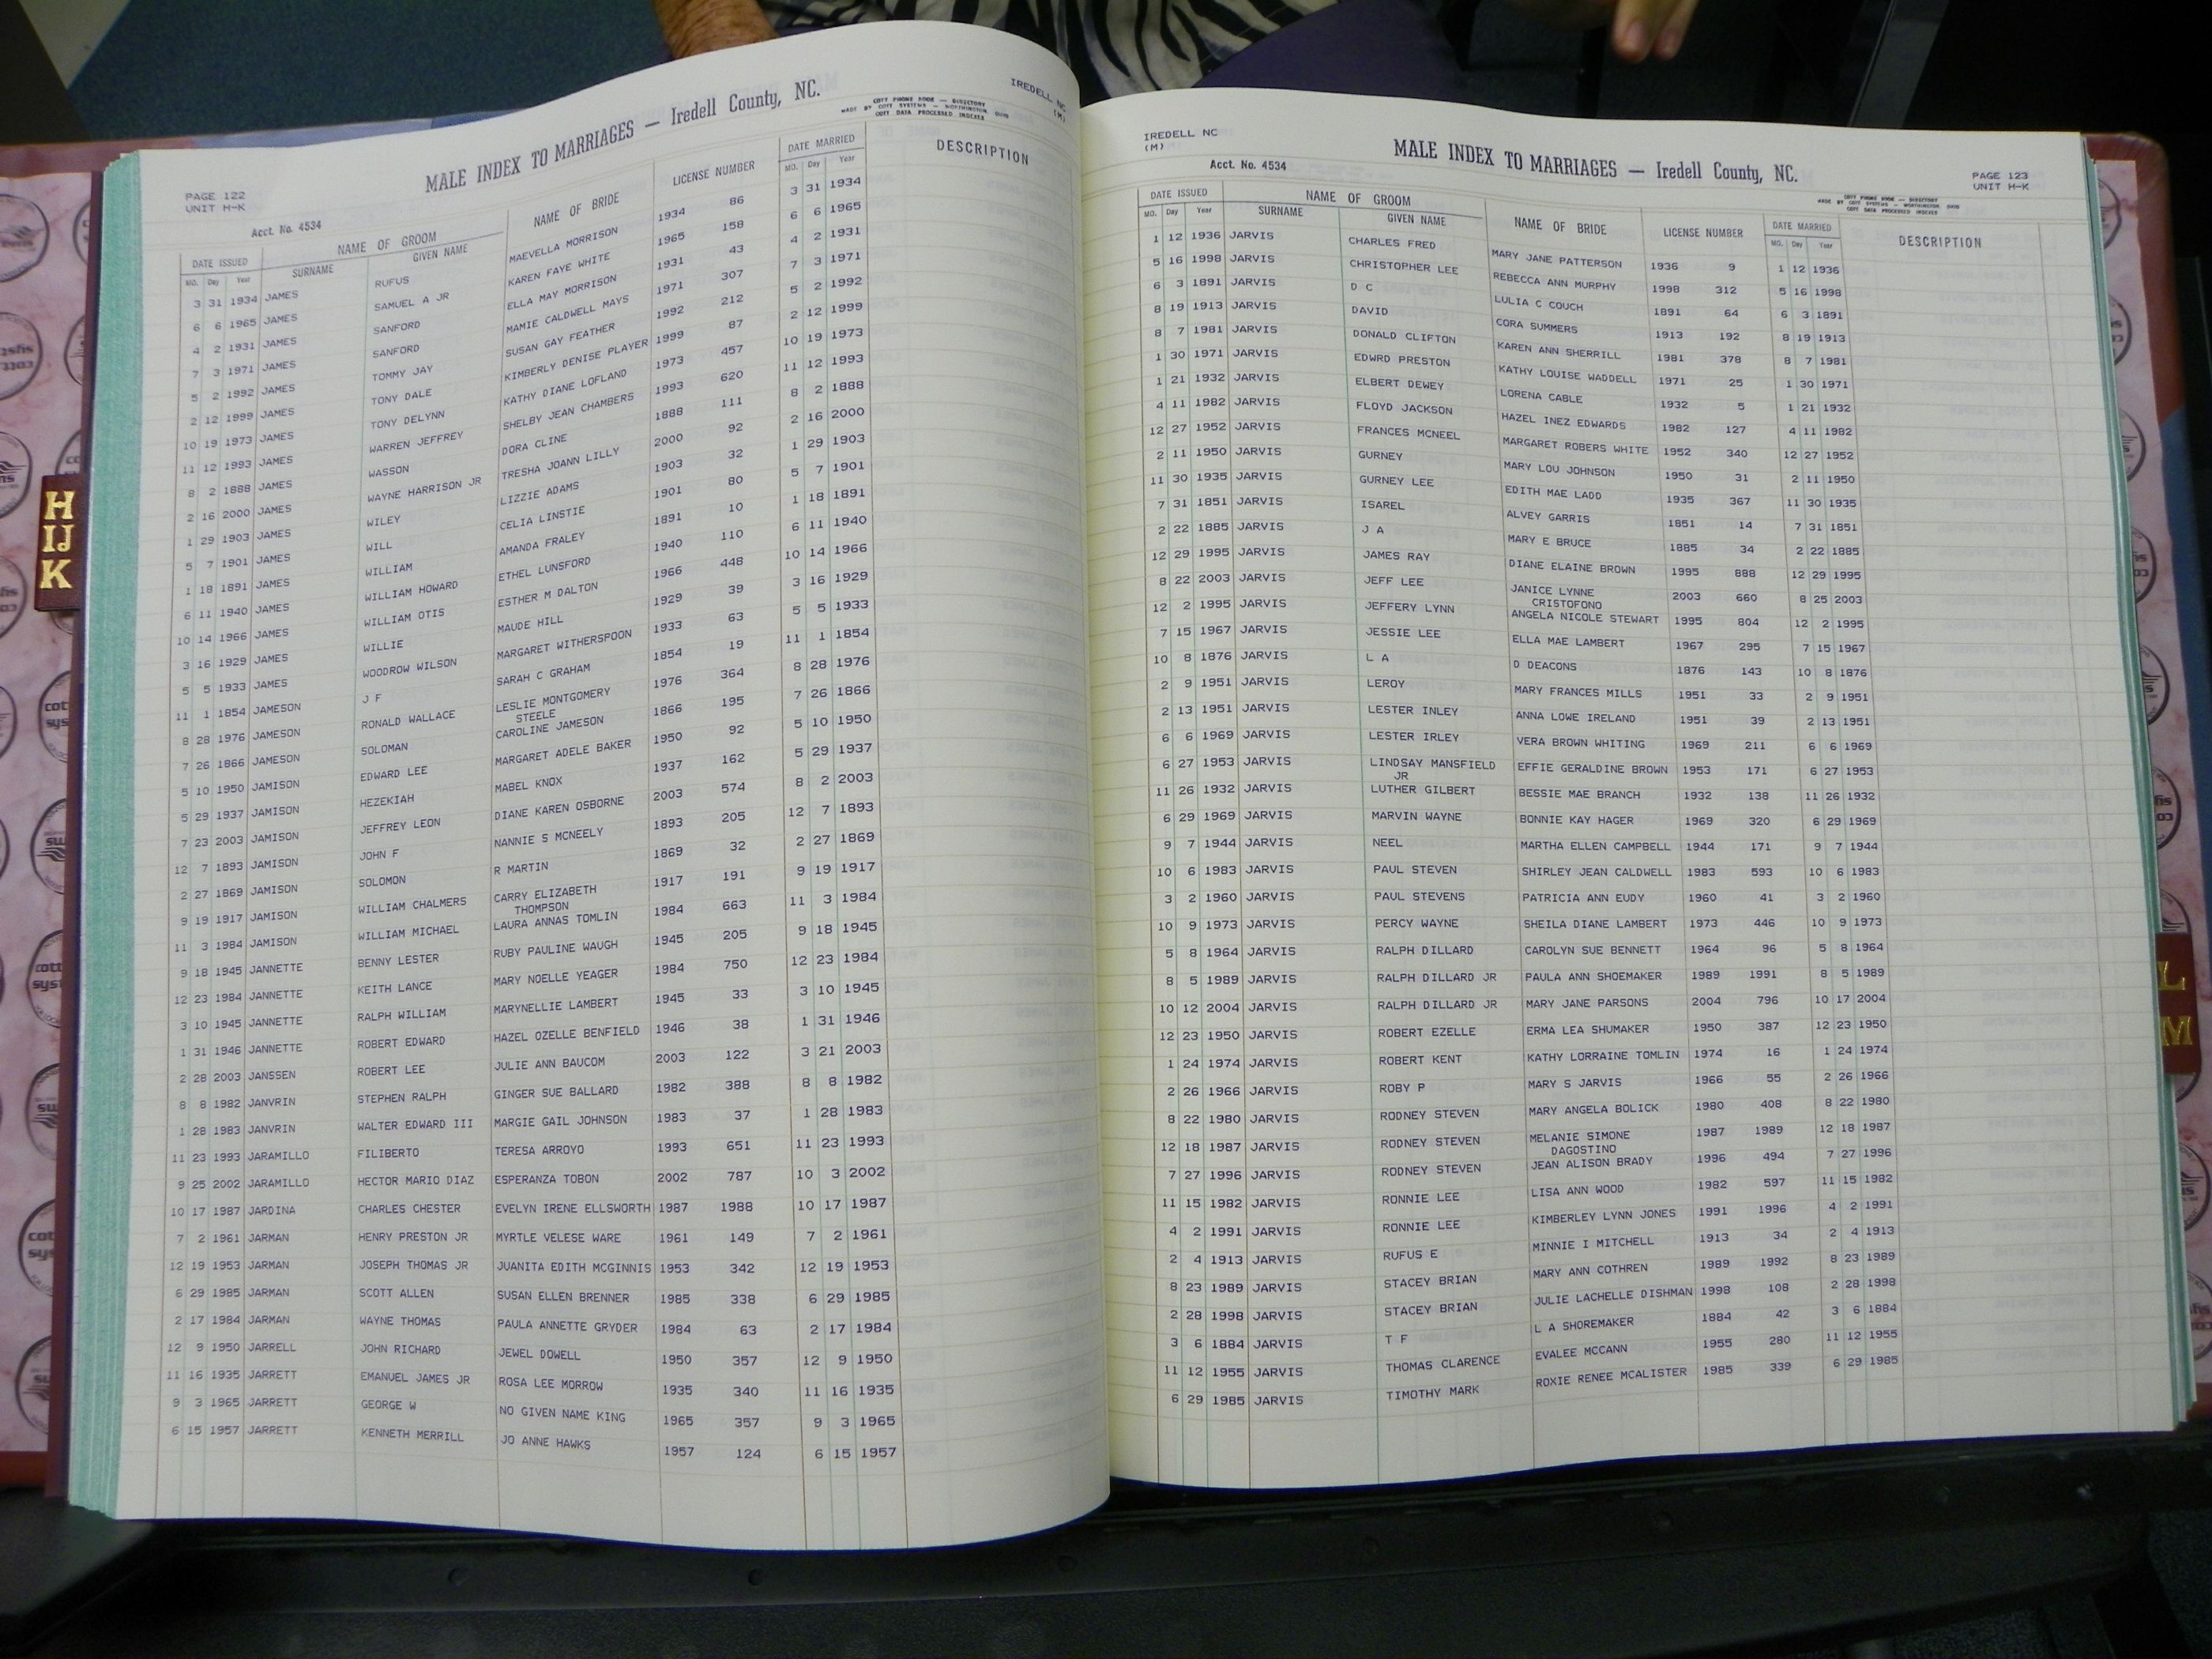 IREDELL NC
(M)
MALE INDEX TO MARRIAGES — Iredell County, NC.
COTT PHONE BOOK — DIRECTORY
MADE BY COTT SYSTEMS — WORTHINGTON, OHIO
COTT DATA PROCESSED INDEXES
PAGE 122
UNIT H-K
Acct. No. 4534
DATE ISSUED NAME OF GROOM NAME OF BRIDE LICENSE NUMBER DATE MARRIED DESCRIPTION
MO. Day Year SURNAME GIVEN NAME MO. Day Year
3 31 1934 JAMES RUFUS MAEVELLA MORRISON 1934 86 3 31 1934
6 6 1965 JAMES SAMUEL A JR KAREN FAYE WHITE 1965 158 6 6 1965
4 2 1931 JAMES SANFORD ELLA MAY MORRISON 1931 43 4 2 1931
7 3 1971 JAMES SANFORD MAMIE CALDWELL MAYS 1971 307 7 3 1971
5 2 1992 JAMES TOMMY JAY SUSAN GAY FEATHER 1992 212 5 2 1992
2 12 1999 JAMES TONY DALE KIMBERLY DENISE PLAYER 1999 87 2 12 1999
10 19 1973 JAMES TONY DELYNN KATHY DIANE LOFLAND 1973 457 10 19 1973
11 12 1993 JAMES WARREN JEFFREY SHELBY JEAN CHAMBERS 1993 620 11 12 1993
8 2 1888 JAMES WASSON DORA CLINE 1888 111 8 2 1888
2 16 2000 JAMES WAYNE HARRISON JR TRESHA JOANN LILLY 2000 92 2 16 2000
1 29 1903 JAMES WILEY LIZZIE ADAMS 1903 32 1 29 1903
5 7 1901 JAMES WILL CELIA LINSTIE 1901 80 5 7 1901
1 18 1891 JAMES WILLIAM AMANDA FRALEY 1891 10 1 18 1891
6 11 1940 JAMES WILLIAM HOWARD ETHEL LUNSFORD 1940 110 6 11 1940
10 14 1966 JAMES WILLIAM OTIS ESTHER M DALTON 1966 448 10 14 1966
3 16 1929 JAMES WILLIE MAUDE HILL 1929 39 3 16 1929
5 5 1933 JAMES WOODROW WILSON MARGARET WITHERSPOON 1933 63 5 5 1933
11 1 1854 JAMESON J F SARAH C GRAHAM 1854 19 11 1 1854
8 28 1976 JAMESON RONALD WALLACE LESLIE MONTGOMERY 1976 364 8 28 1976
STEELE
7 26 1866 JAMESON SOLOMAN CAROLINE JAMESON 1866 195 7 26 1866
5 10 1950 JAMISON EDWARD LEE MARGARET ADELE BAKER 1950 92 5 10 1950
5 29 1937 JAMISON HEZEKIAH MABEL KNOX 1937 162 5 29 1937
7 23 2003 JAMISON JEFFREY LEON DIANE KAREN OSBORNE 2003 574 8 2 2003
12 7 1893 JAMISON JOHN F NANNIE S MCNEELY 1893 205 12 7 1893
2 27 1869 JAMISON SOLOMON R MARTIN 1869 32 2 27 1869
9 19 1917 JAMISON WILLIAM CHALMERS CARRY ELIZABETH 1917 191 9 19 1917
THOMPSON
11 3 1984 JAMISON WILLIAM MICHAEL LAURA ANNAS TOMLIN 1984 663 11 3 1984
9 18 1945 JANNETTE BENNY LESTER RUBY PAULINE WAUGH 1945 205 9 18 1945
12 23 1984 JANNETTE KEITH LANCE MARY NOELLE YEAGER 1984 750 12 23 1984
3 10 1945 JANNETTE RALPH WILLIAM MARYNELLIE LAMBERT 1945 33 3 10 1945
1 31 1946 JANNETTE ROBERT EDWARD HAZEL OZELLE BENFIELD 1946 38 1 31 1946
2 28 2003 JANSSEN ROBERT LEE JULIE ANN BAUCOM 2003 122 3 21 2003
8 8 1982 JANVRIN STEPHEN RALPH GINGER SUE BALLARD 1982 388 8 8 1982
1 28 1983 JANVRIN WALTER EDWARD III MARGIE GAIL JOHNSON 1983 37 1 28 1983
11 23 1993 JARAMILLO FILIBERTO TERESA ARROYO 1993 651 11 23 1993
9 25 2002 JARAMILLO HECTOR MARIO DIAZ ESPERANZA TOBON 2002 787 10 3 2002
10 17 1987 JARDINA CHARLES CHESTER EVELYN IRENE ELLSWORTH 1987 1988 10 17 1987
7 2 1961 JARMAN HENRY PRESTON JR MYRTLE VELESE WARE 1961 149 7 2 1961
12 19 1953 JARMAN JOSEPH THOMAS JR JUANITA EDITH MCGINNIS 1953 342 12 19 1953
6 29 1985 JARMAN SCOTT ALLEN SUSAN ELLEN BRENNER 1985 338 6 29 1985
2 17 1984 JARMAN WAYNE THOMAS PAULA ANNETTE GRYDER 1984 63 2 17 1984
12 9 1950 JARRELL JOHN RICHARD JEWEL DOWELL 1950 357 12 9 1950
11 16 1935 JARRETT EMANUEL JAMES JR ROSA LEE MORROW 1935 340 11 16 1935
9 3 1965 JARRETT GEORGE W NO GIVEN NAME KING 1965 357 9 3 1965
6 15 1957 JARRETT KENNETH MERRILL JO ANNE HAWKS 1957 124 6 15 1957
IREDELL NC
(M)
Acct. No. 4534
MALE INDEX TO MARRIAGES — Iredell County, NC.
PAGE 123
UNIT H-K
COTT PHONE BOOK — DIRECTORY
MADE BY COTT SYSTEMS — WORTHINGTON, OHIO
COTT DATA PROCESSED INDEXES
DATE ISSUED NAME OF GROOM NAME OF BRIDE LICENSE NUMBER DATE MARRIED DESCRIPTION
MO. Day Year SURNAME GIVEN NAME MO. Day Year
1 12 1936 JARVIS CHARLES FRED MARY JANE PATTERSON 1936 9 1 12 1936
5 16 1998 JARVIS CHRISTOPHER LEE REBECCA ANN MURPHY 1998 312 5 16 1998
6 3 1891 JARVIS D C LULIA C COUCH 1891 64 6 3 1891
8 19 1913 JARVIS DAVID CORA SUMMERS 1913 192 8 19 1913
8 7 1981 JARVIS DONALD CLIFTON KAREN ANN SHERRILL 1981 378 8 7 1981
1 30 1971 JARVIS EDWRD PRESTON KATHY LOUISE WADDELL 1971 25 1 30 1971
1 21 1932 JARVIS ELBERT DEWEY LORENA CABLE 1932 5 1 21 1932
4 11 1982 JARVIS FLOYD JACKSON HAZEL INEZ EDWARDS 1982 127 4 11 1982
12 27 1952 JARVIS FRANCES MCNEEL MARGARET ROBERS WHITE 1952 340 12 27 1952
2 11 1950 JARVIS GURNEY MARY LOU JOHNSON 1950 31 2 11 1950
11 30 1935 JARVIS GURNEY LEE EDITH MAE LADD 1935 367 11 30 1935
7 31 1851 JARVIS ISAREL ALVEY GARRIS 1851 14 7 31 1851
2 22 1885 JARVIS J A MARY E BRUCE 1885 34 2 22 1885
12 29 1995 JARVIS JAMES RAY DIANE ELAINE BROWN 1995 888 12 29 1995
8 22 2003 JARVIS JEFF LEE JANICE LYNNE 2003 660 8 25 2003
CRISTOFONO
12 2 1995 JARVIS JEFFERY LYNN ANGELA NICOLE STEWART 1995 804 12 2 1995
7 15 1967 JARVIS JESSIE LEE ELLA MAE LAMBERT 1967 295 7 15 1967
10 8 1876 JARVIS L A D DEACONS 1876 143 10 8 1876
2 9 1951 JARVIS LEROY MARY FRANCES MILLS 1951 33 2 9 1951
2 13 1951 JARVIS LESTER INLEY ANNA LOWE IRELAND 1951 39 2 13 1951
6 6 1969 JARVIS LESTER IRLEY VERA BROWN WHITING 1969 211 6 6 1969
6 27 1953 JARVIS LINDSAY MANSFIELD EFFIE GERALDINE BROWN 1953 171 6 27 1953
JR
11 26 1932 JARVIS LUTHER GILBERT BESSIE MAE BRANCH 1932 138 11 26 1932
6 29 1969 JARVIS MARVIN WAYNE BONNIE KAY HAGER 1969 320 6 29 1969
9 7 1944 JARVIS NEEL MARTHA ELLEN CAMPBELL 1944 171 9 7 1944
10 6 1983 JARVIS PAUL STEVEN SHIRLEY JEAN CALDWELL 1983 593 10 6 1983
3 2 1960 JARVIS PAUL STEVENS PATRICIA ANN EUDY 1960 41 3 2 1960
10 9 1973 JARVIS PERCY WAYNE SHEILA DIANE LAMBERT 1973 446 10 9 1973
5 8 1964 JARVIS RALPH DILLARD CAROLYN SUE BENNETT 1964 96 5 8 1964
8 5 1989 JARVIS RALPH DILLARD JR PAULA ANN SHOEMAKER 1989 1991 8 5 1989
10 12 2004 JARVIS RALPH DILLARD JR MARY JANE PARSONS 2004 796 10 17 2004
12 23 1950 JARVIS ROBERT EZELLE ERMA LEA SHUMAKER 1950 387 12 23 1950
1 24 1974 JARVIS ROBERT KENT KATHY LORRAINE TOMLIN 1974 16 1 24 1974
2 26 1966 JARVIS ROBY P MARY S JARVIS 1966 55 2 26 1966
8 22 1980 JARVIS RODNEY STEVEN MARY ANGELA BOLICK 1980 408 8 22 1980
12 18 1987 JARVIS RODNEY STEVEN MELANIE SIMONE 1987 1989 12 18 1987
DAGOSTINO
7 27 1996 JARVIS RODNEY STEVEN JEAN ALISON BRADY 1996 494 7 27 1996
11 15 1982 JARVIS RONNIE LEE LISA ANN WOOD 1982 597 11 15 1982
4 2 1991 JARVIS RONNIE LEE KIMBERLEY LYNN JONES 1991 1996 4 2 1991
2 4 1913 JARVIS RUFUS E MINNIE I MITCHELL 1913 34 2 4 1913
8 23 1989 JARVIS STACEY BRIAN MARY ANN COTHREN 1989 1992 8 23 1989
2 28 1998 JARVIS STACEY BRIAN JULIE LACHELLE DISHMAN 1998 108 2 28 1998
3 6 1884 JARVIS T F L A SHOREMAKER 1884 42 3 6 1884
11 12 1955 JARVIS THOMAS CLARENCE EVALEE MCCANN 1955 280 11 12 1955
6 29 1985 JARVIS TIMOTHY MARK ROXIE RENEE MCALISTER 1985 339 6 29 1985
H
IJ
K
L
M